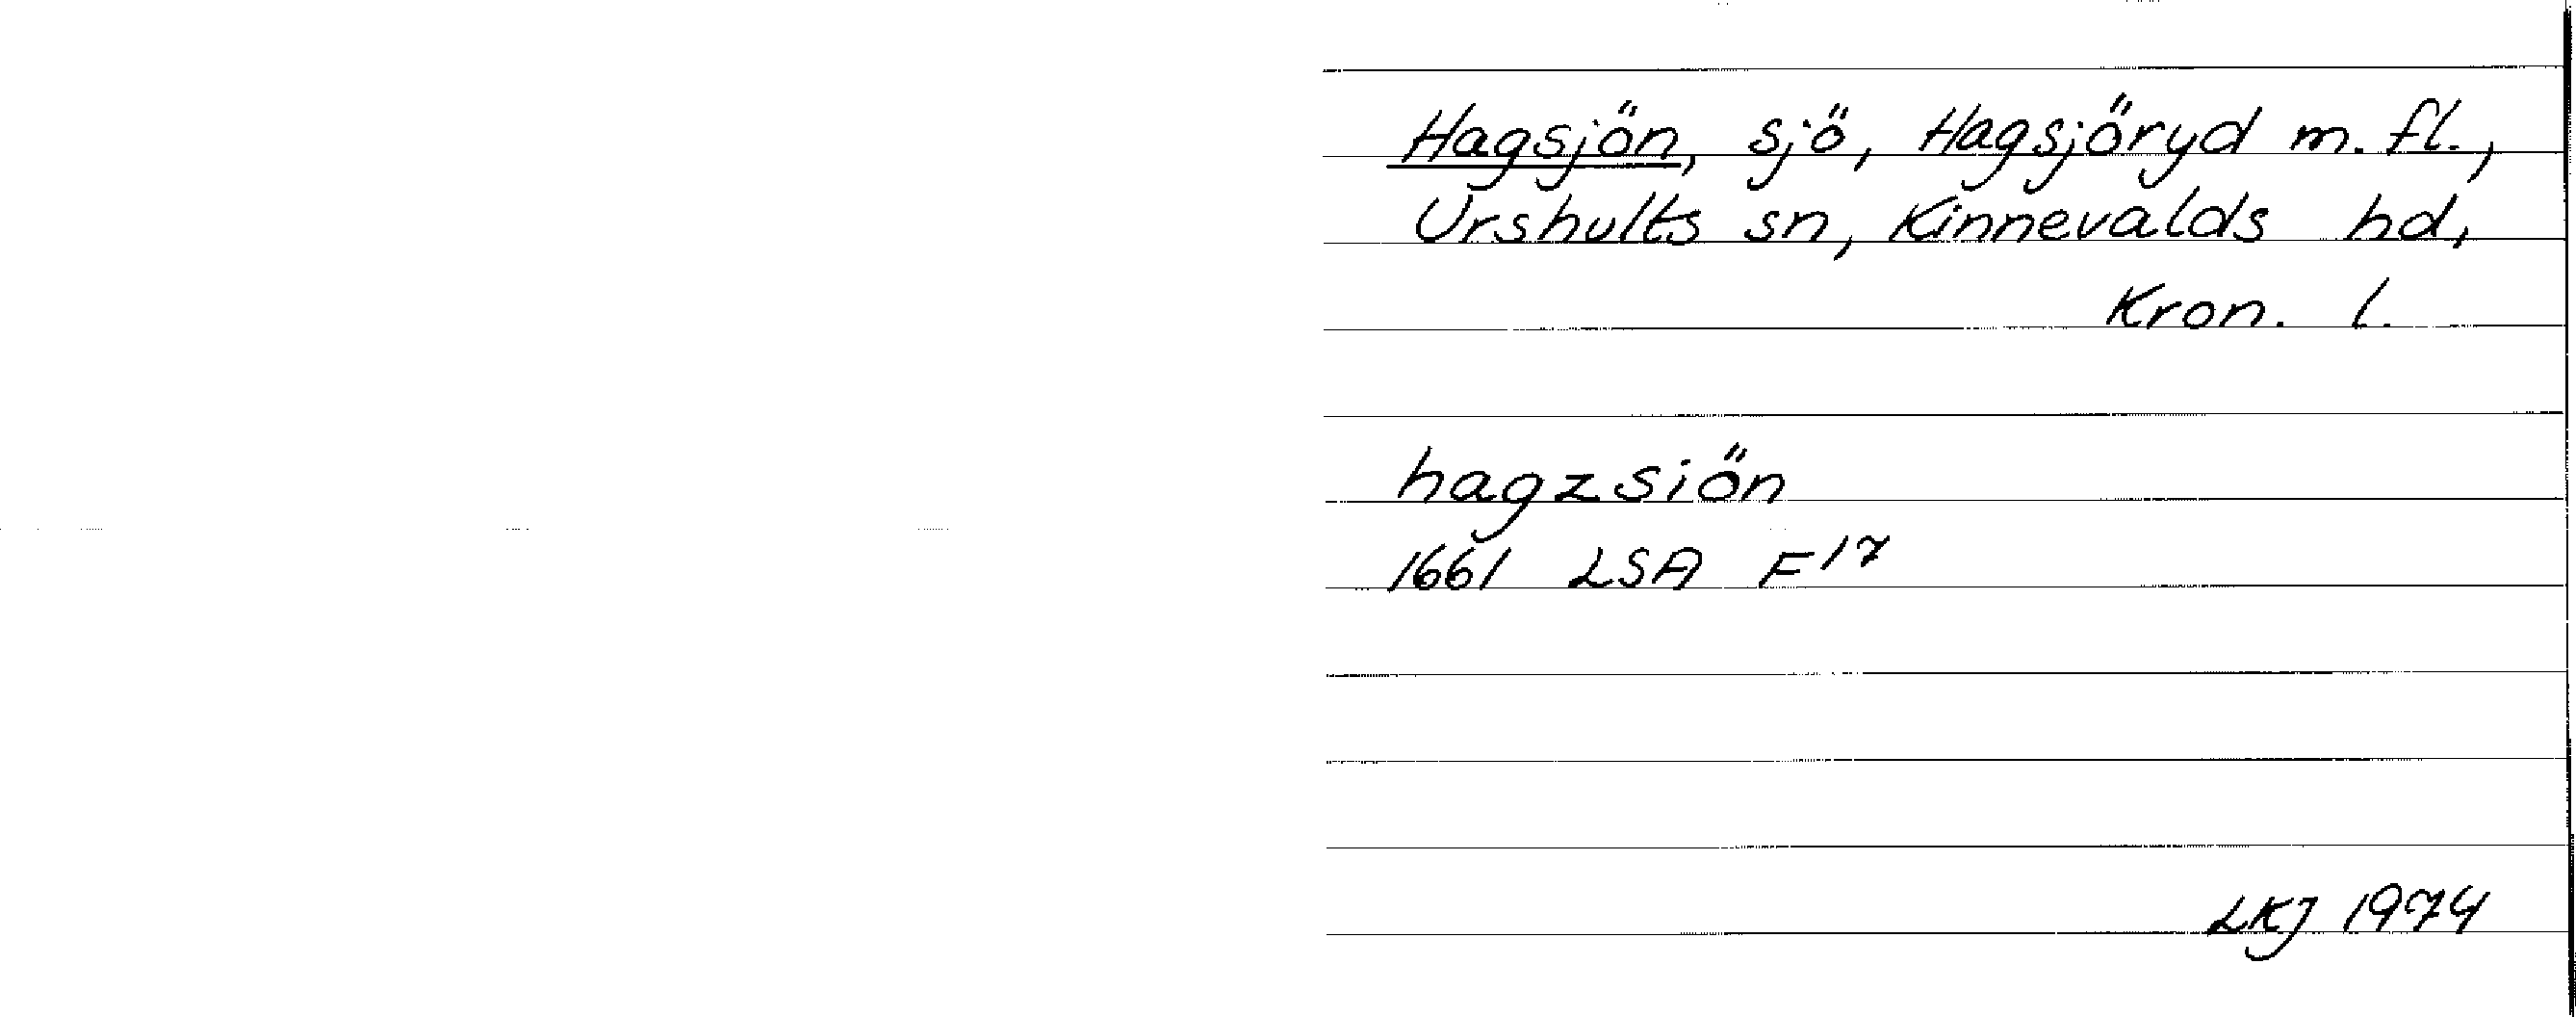 Hagsjön, sjö, Hagsjöryd m. fl.,
Urshults sn, Kinnevalds hd,
Kron. l.
hagzsiön
1661 LSA F17
LKJ 1974